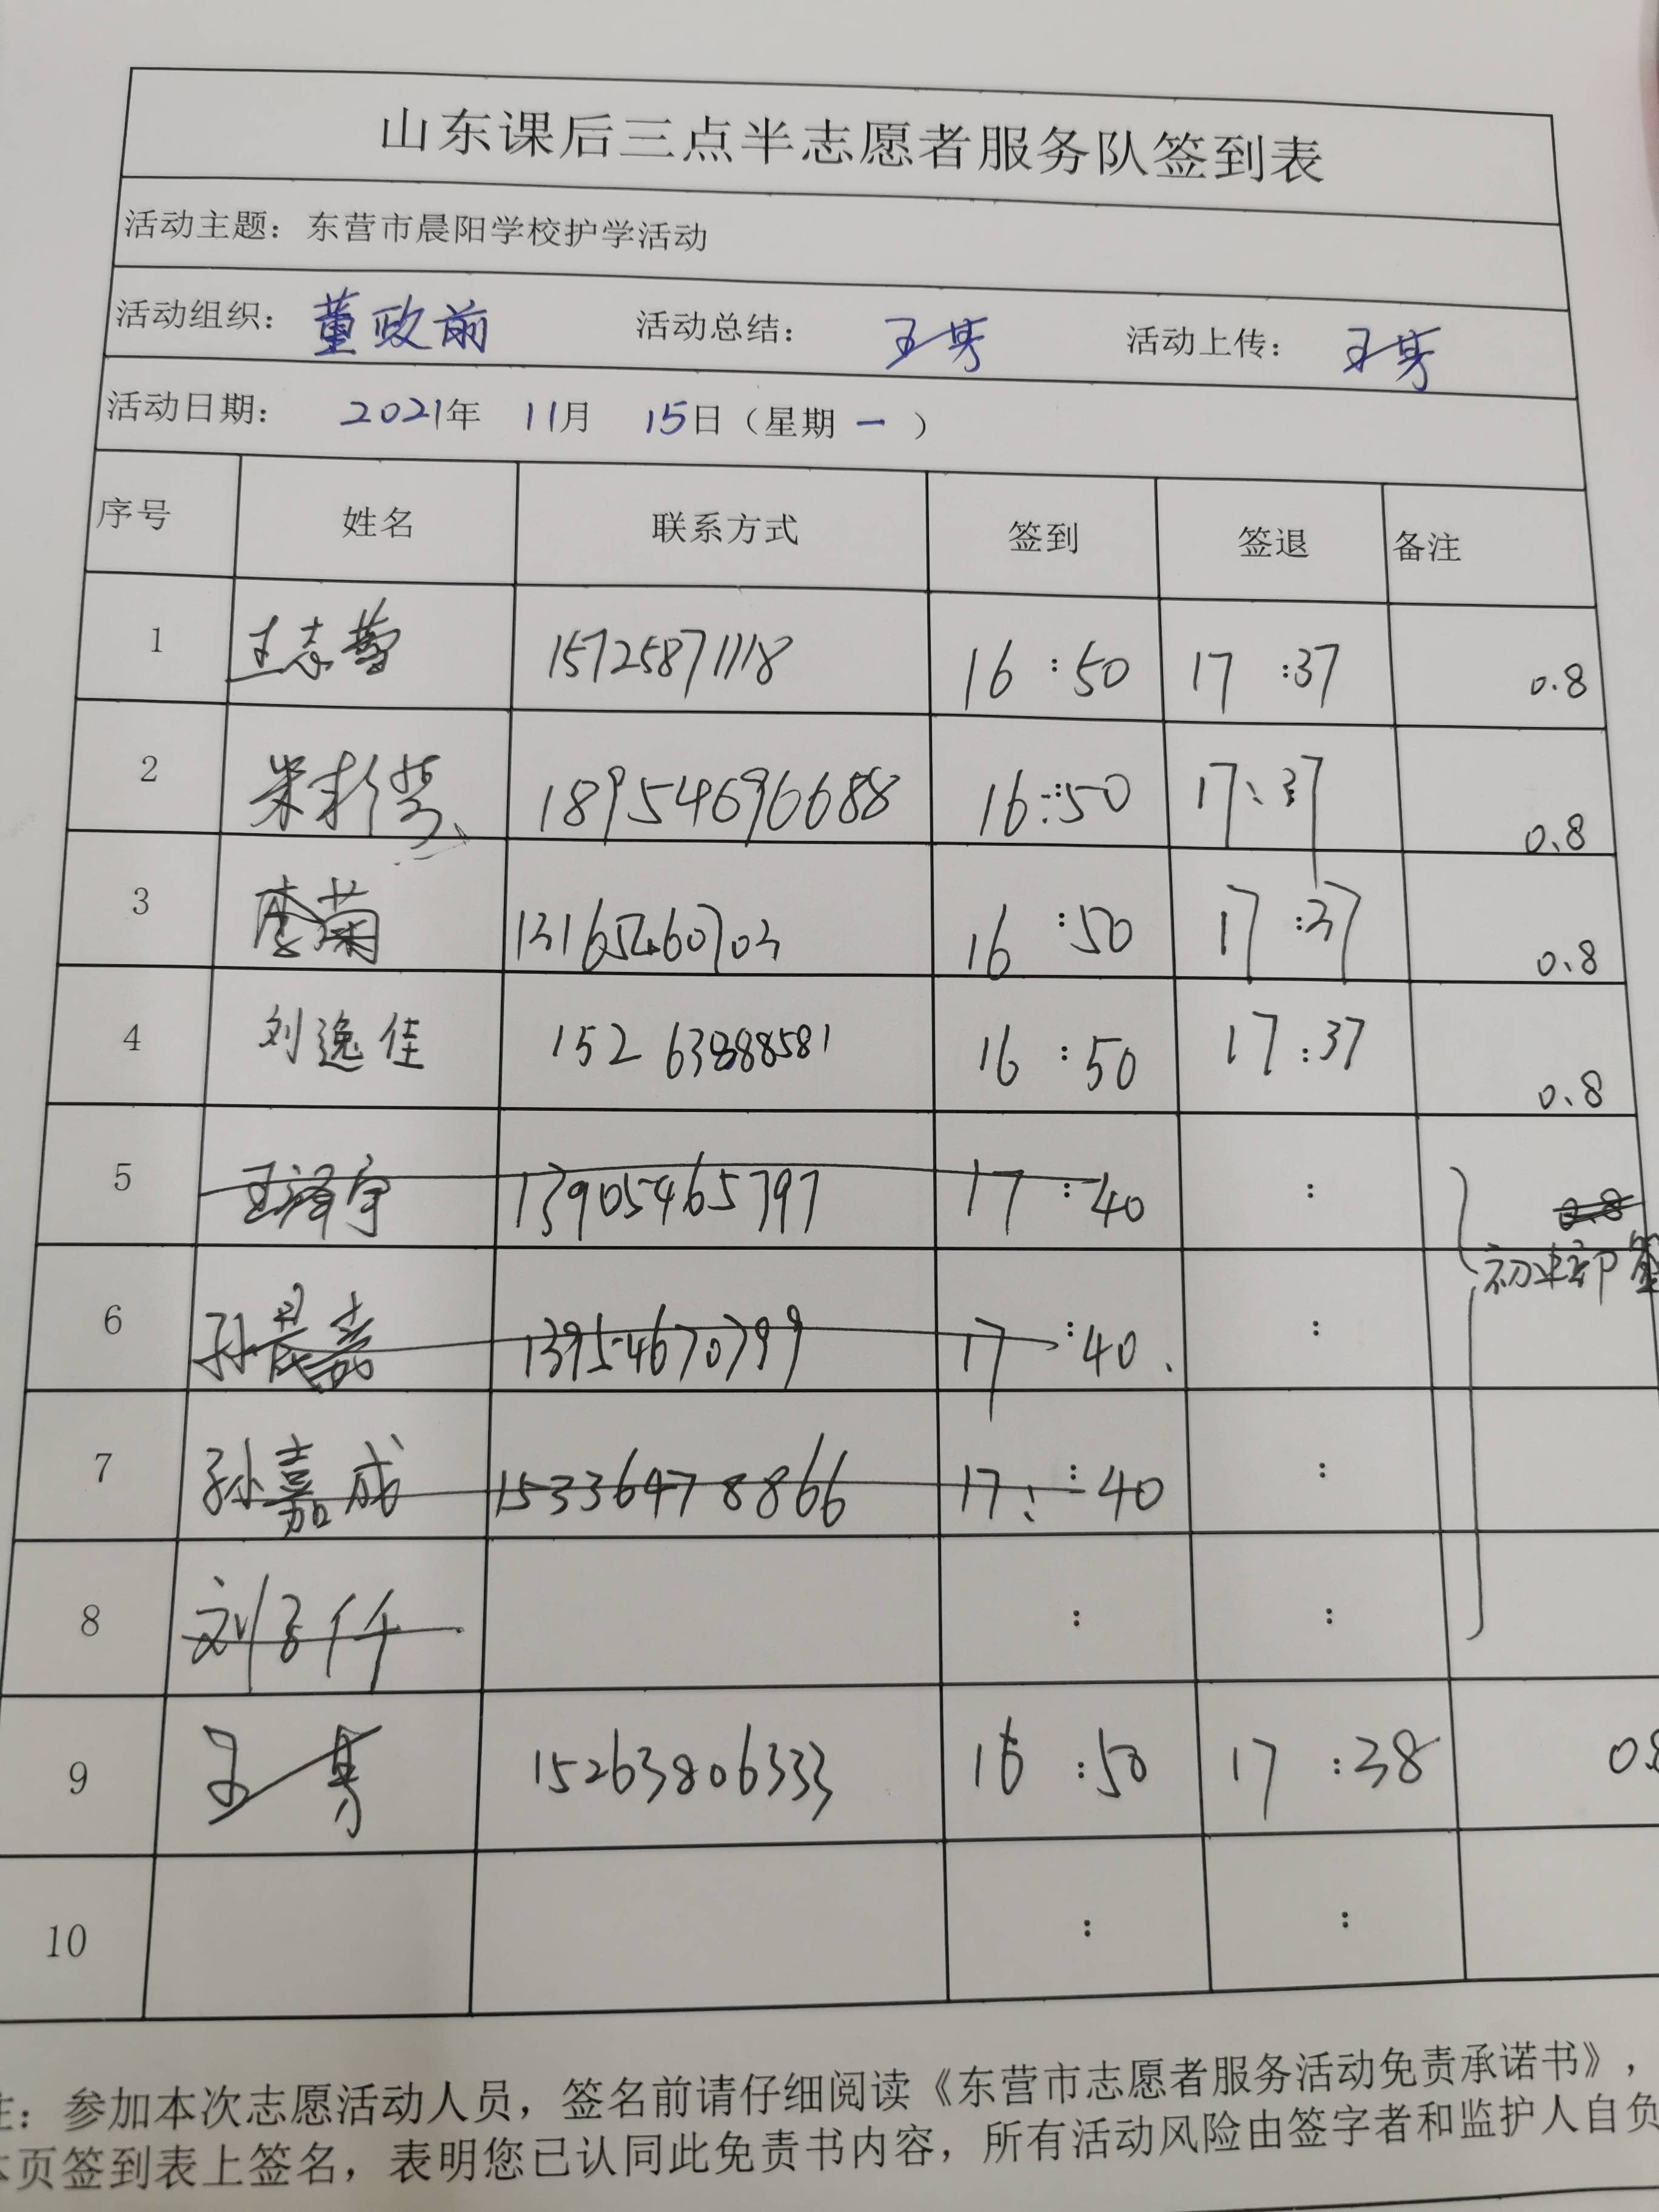 山东课后三点半志愿者服务队签到表
活动主题：东营市晨阳学校护学活动
活动组织：董政前 活动总结：王男 活动上传：王男
活动日期： 2021年 11月 15日（星期 一 ）
序号 姓名 联系方式 签到 签退 备注
1 王志 15725871118 16:50 17:37 0.8
2 18954696688 16:50 17:37 0.8
3 李菊 13165260703 16:50 17:37 0.8
4 刘逸佳 152 63888581 16:50 17:37 0.8
5 王泽宇 13905465797 17:40 : 0.8
6 孙晨嘉 13954670799 17:40 : 初中部
7 孙嘉成 15336478866 17:40 :
8 刘子仟 : :
9 王男 15263806333 16:50 17:38 0.8
10 : :
注：参加本次志愿活动人员，签名前请仔细阅读《东营市志愿者服务活动免责承诺书》，
本页签到表上签名，表明您已认同此免责书内容，所有活动风险由签字者和监护人自负